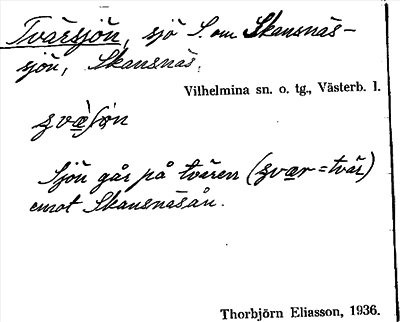 Tvärsjön, sjö S. om Skansnäs-
sjön, Skansnäs.
Vilhelmina sn. o. tg., Västerb. l.
Sjön går på tvären (zvær = tvär)
emot Skansnäsån.
Thorbjörn Eliasson, 1936.